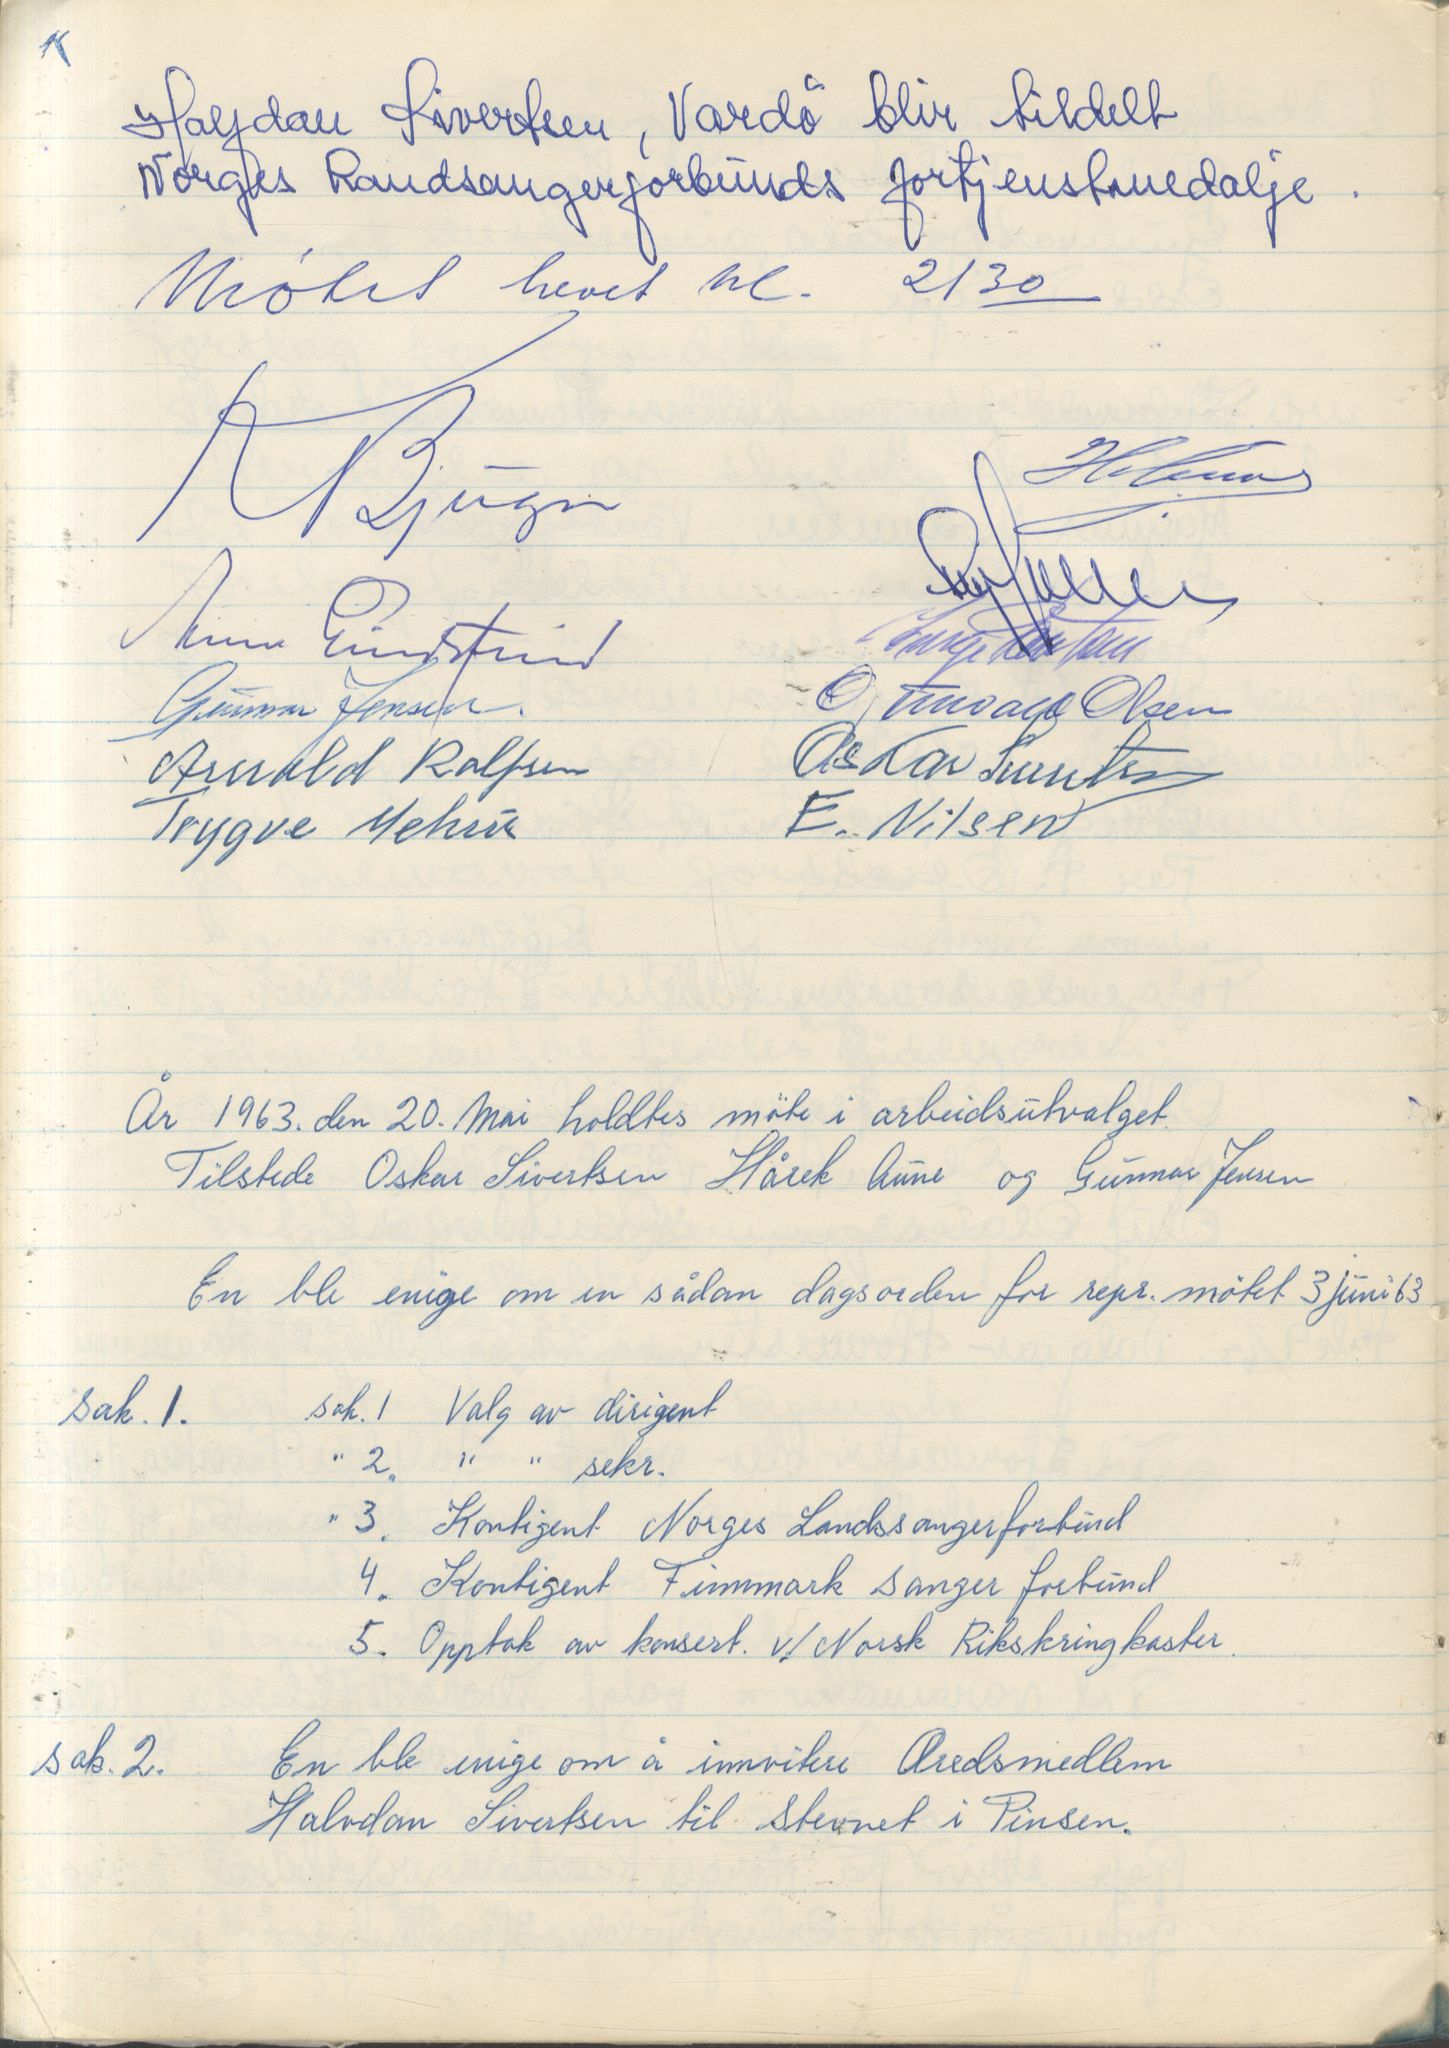 Halfdan Sivertsen, Vardö blir tildelt
Norges Landsangerforbunds fortjenstmedalje.
Møtet hevet kl. 2130
K Bjugn
Gunnar Jensen.
Arnold Rolfsen
Olsen
Oskar Sivertsen
Trygve
E. Nilsen
År 1963. den 20. Mai holdtes möte i arbeidsutvalget.
Tilstede Oskar Sivertsen Hårek Aune og Gunnar Jensen
En ble enige om en sådan dagsorden for repr. mötet 3 juni 63
sak. 1. sak. 1 Valg av dirigent
" 2. " " sekr.
" 3. Kontigent Norges Landssangerforbund
4. Kontigent Finnmark sanger forbund
5. Opptak av konsert. v/ Norsk Rikskringkaster.
sak. 2. En ble enige om å innvitere Æredsmedlem
Halvdan Sivertsen til stevnet i Pinsen.